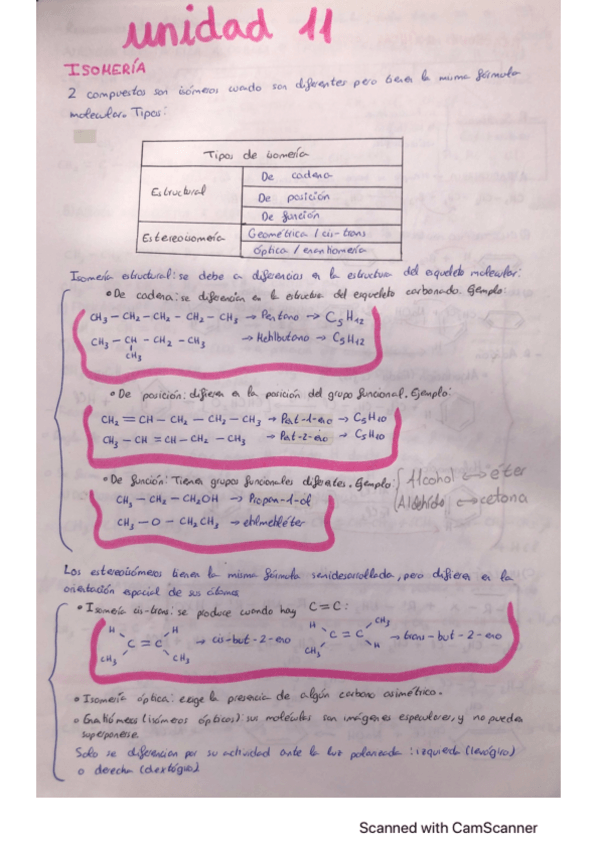 unidad 11
ISOMERÍA
2 compuestos son isómeros cuando son diferentes pero tienen la misma fórmula
molecular. Tipos:
Tipos de isomería
Estructural
De cadena
De posición
De función
Estereoisomería
Geométrica / cis-trans
óptica / enantiomería
Isomería estructural: se debe a diferencias en la estructura del esqueleto molecular:
• De cadena: se diferencian en la estructura del esqueleto carbonado. Ejemplo:
CH3 - CH2 - CH2 - CH2 - CH3 → Pentano → C5H12
CH3 - CH - CH2 - CH3 → Metilbutano → C5H12
CH3
• De posición: difieren en la posición del grupo funcional. Ejemplo:
CH2 = CH - CH2 - CH2 - CH3 → Pent-1-eno → C5H10
CH3 - CH = CH - CH2 - CH3 → Pent-2-eno → C5H10
• De función: Tienen grupos funcionales diferentes. Ejemplo: Alcohol ↔ éter
Aldehido ↔ cetona
CH3 - CH2 - CH2OH → Propan-1-ol
CH3 - O - CH2CH3 → etilmetiléter
Los estereoisómeros tienen la misma fórmula semidesarrollada, pero difieren en la
orientación espacial de sus átomos
• Isomería cis-trans: se produce cuando hay C=C:
H H H CH3
C = C → cis-but-2-eno C = C → trans-but-2-eno
CH3 CH3 CH3 H
• Isomería óptica: exige la presencia de algún carbono asimétrico.
• (isómeros ópticos) sus moléculas son imágenes especulares, y no pueden
superponerse.
Solo se diferencian por su actividad ante la luz polarizada: izquierda (levógiro)
o derecha (dextógiro)
Scanned with CamScanner